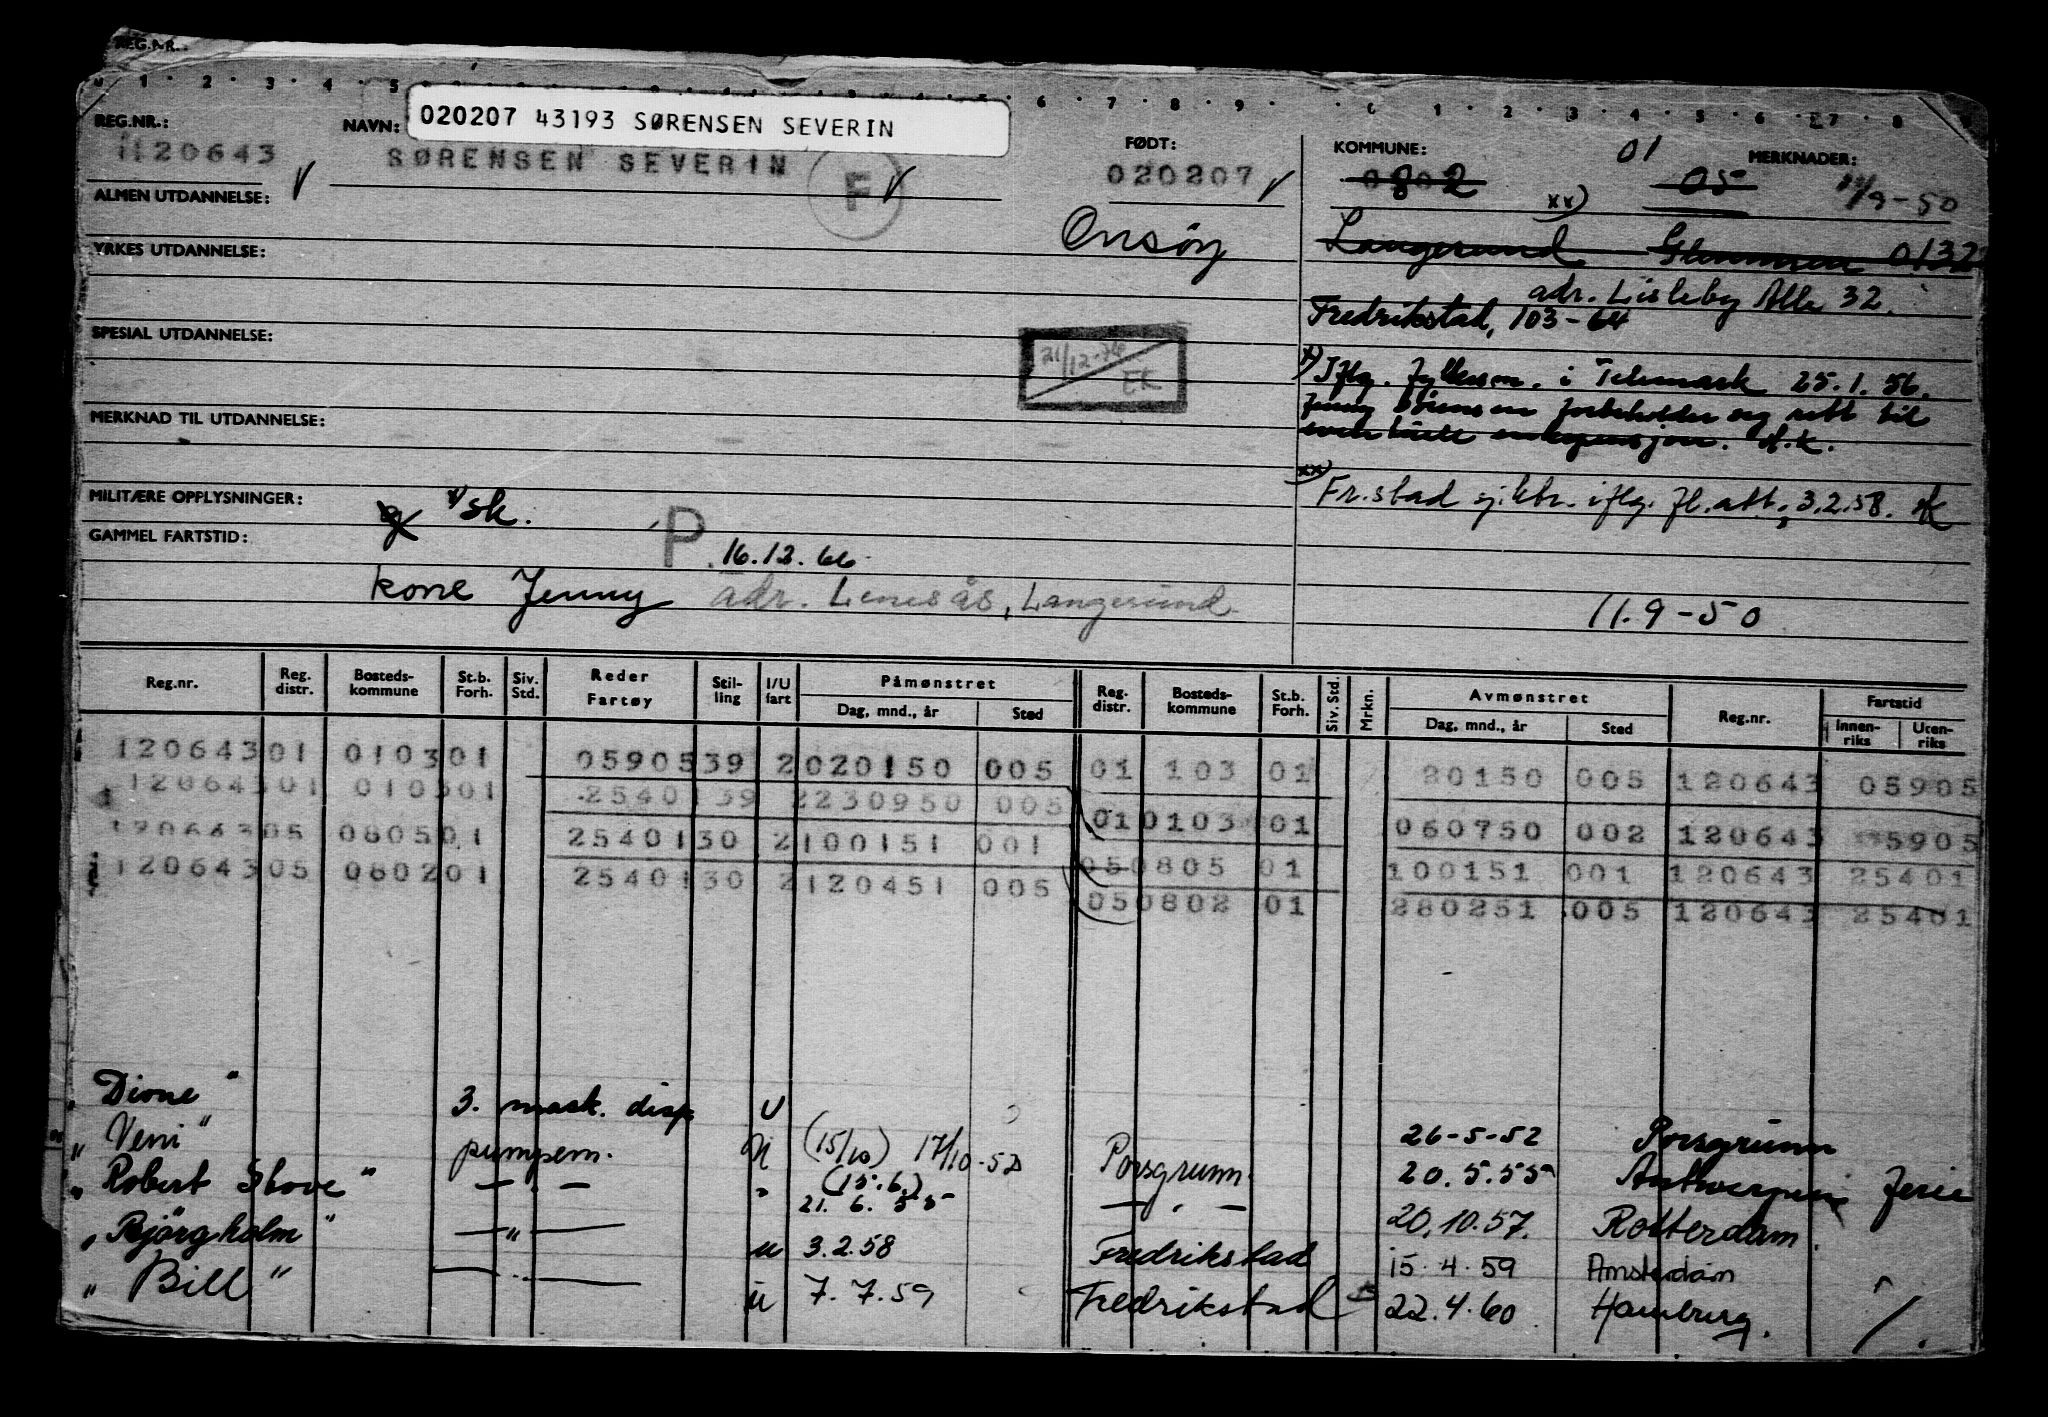 REG.NR.:
020207 43193 SØRENSEN SEVERIN
REG.NR.: NAVN: FØDT: KOMMUNE: 01 MERKNADER:
1120643 SØRENSEN SEVERIN F 020207 0802 05 11/9-50
ALMEN UTDANNELSE: xx)
Onsøy Langesund Glemmen 0132
YRKES UTDANNELSE:
adr. Lisleby Alle 32.
Fredrikstad, 103-64
SPESIAL UTDANNELSE:
21/12-74 EK
x) Iflg. fylkesm. i Telemark 25.1.56.
Jenny Sørensen forbeholder seg rett til
MERKNAD TIL UTDANNELSE:
eventuell enkepensjon.
xx) Fr.stad sj.ktr. iflg. fl.att., 3.2.58.
MILITÆRE OPPLYSNINGER:
g x) sk.
GAMMEL FARTSTID:
P. 16.12.66.
kone Jenny adr. Lenesås, Langesund.
11.9-50
Reg.nr. Reg. distr. Bosteds-kommune St.b. Forh. Siv. Std. Reder Fartøy Stil-ling I/U fart Påmønstret Dag, mnd., år Sted Reg. distr. Bosteds-kommune St.b. Forh. Siv. Std. Mrkn. Avmønstret Dag, mnd., år Sted Reg.nr. Fartstid Innen-riks Uten-riks
120643 01 0103 01 05905 39 2 020150 005 01 103 01 20150 005 120643 05905
120643 01 0103 01 25401 39 2 230950 005 01 0103 01 060750 002 120643 5905
120643 05 0805 01 25401 30 2 100151 001 05 0805 01 100151 001 120643 25401
120643 05 0802 01 25401 30 2 120451 005 05 0802 01 280251 005 120643 25401
"Dione" 3. mask. disp U 26-5-52 Porsgrunn
"Veni" pumpem. U (15/10) 17/10-52 Porsgrunn. 20.5.55 Antwerpen Ferie
"Robert Stove" — " — " (15.6.) 21.6.55 — " — 20.10.57. Rotterdam.
"Bjørgholm" — " — u 3.2.58 Fredrikstad 15.4.59 Amsterdam "
"Bill" — " — u 7.7.59 Fredrikstad 22.4.60 Hamburg.